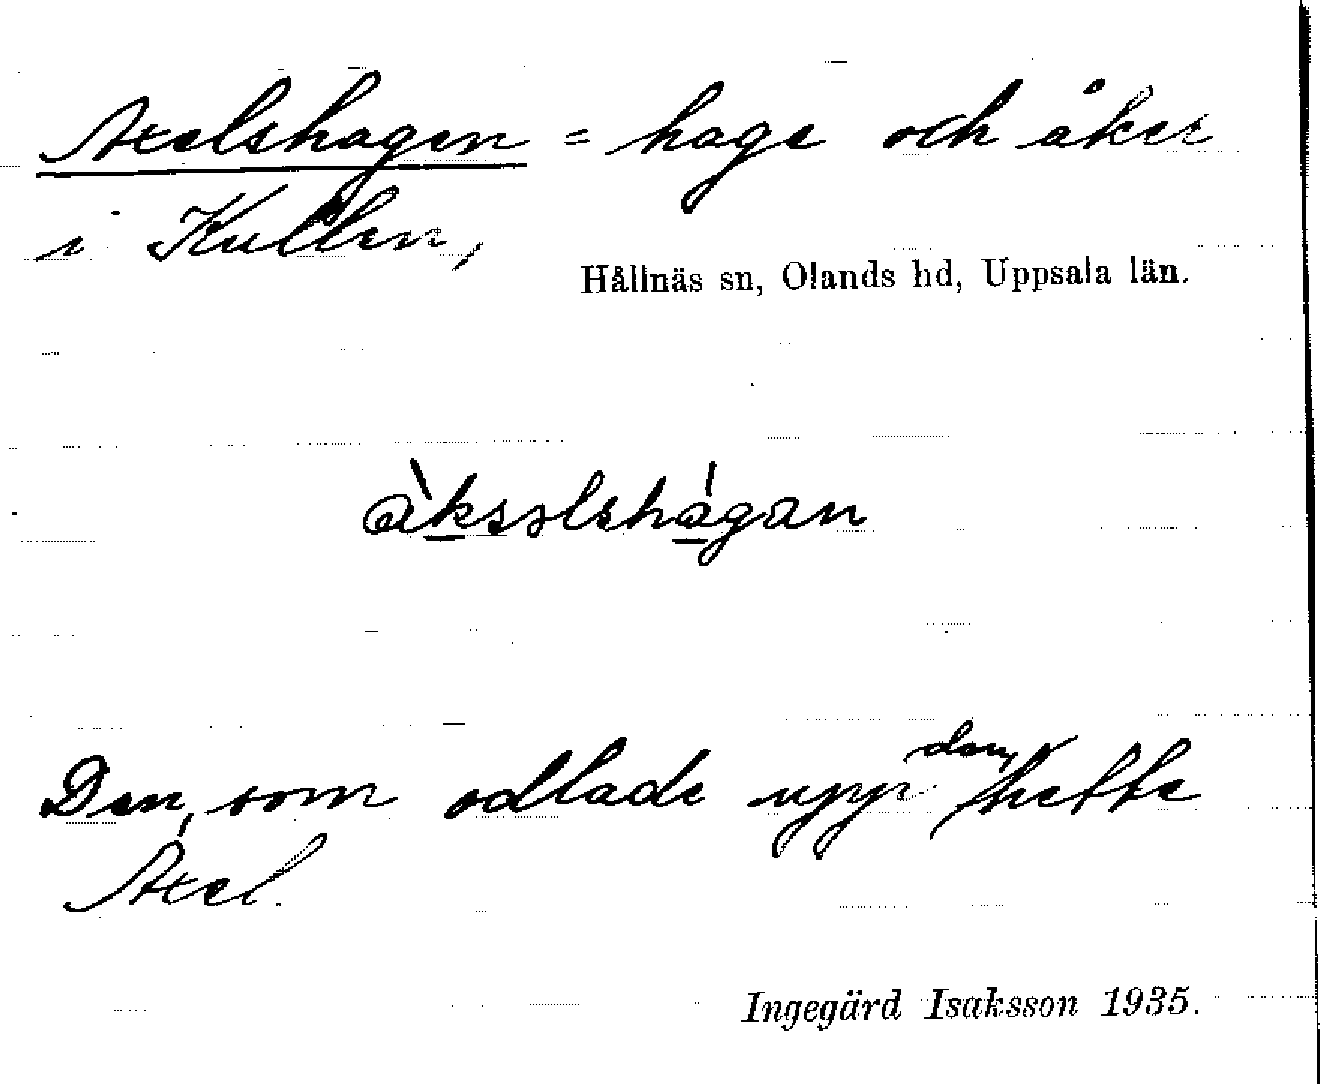 Axelshagen = hage och åker
i Kullen,
Hållnäs sn, Olands hd, Uppsala län.
àksəlshágan
Den, som odlade upp den, hette
Axel.
Ingegärd Isaksson 1935.